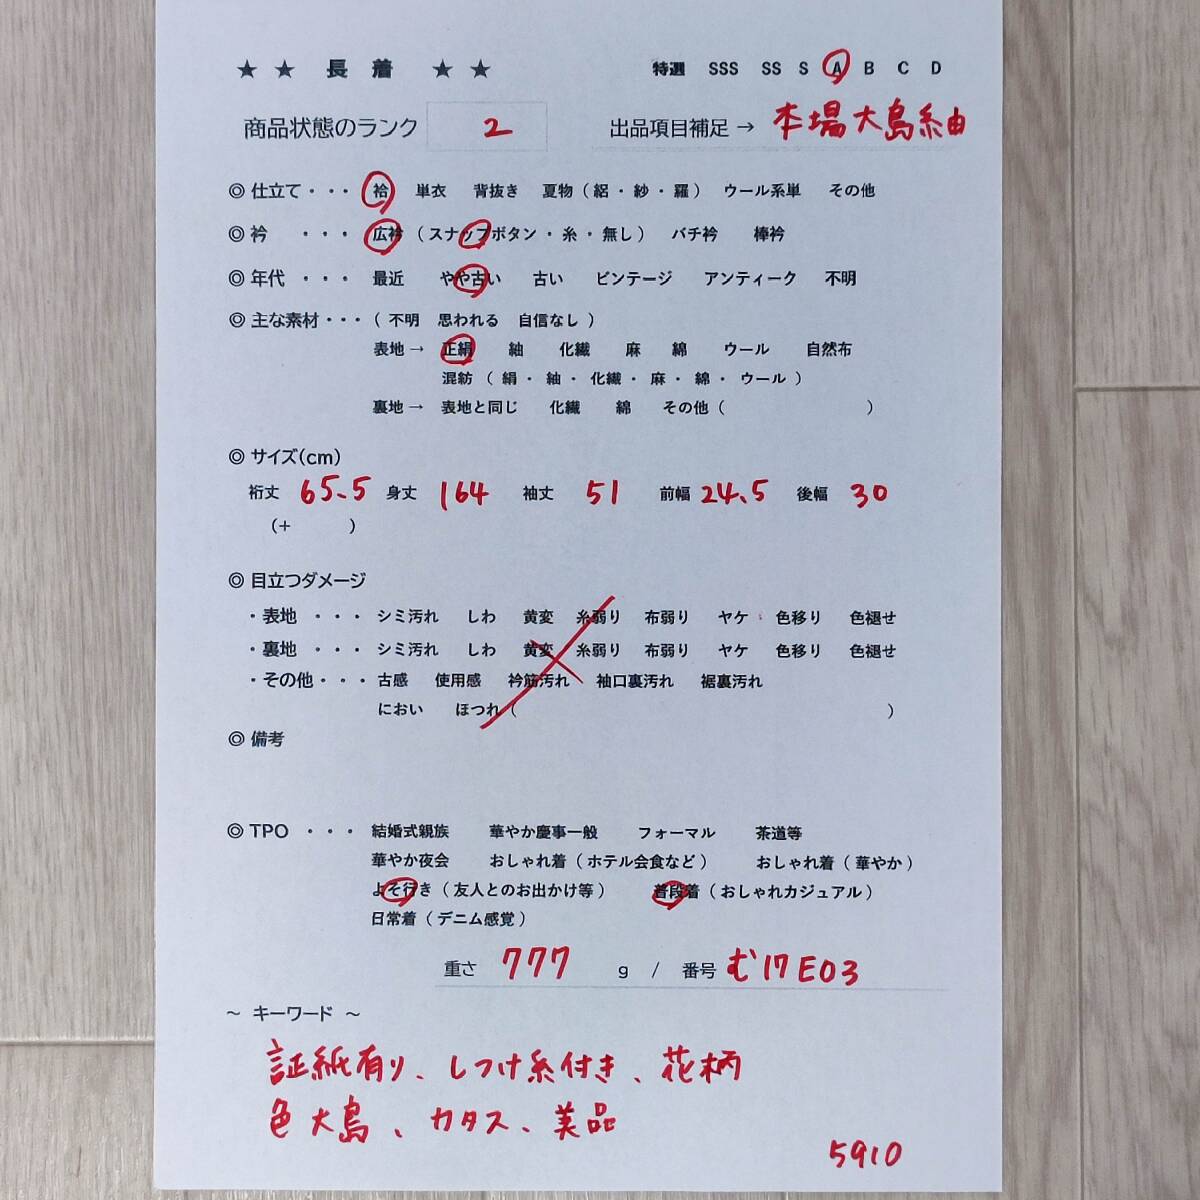 ★ ★ 長 着 ★ ★ 特選 SSS SS S A B C D
商品状態のランク 2 出品項目補足 → 本場大島紬
◎ 仕立て・・・ 袷 単衣 背抜き 夏物 ( 絽 ・ 紗 ・ 羅 ) ウール系単 その他
◎ 衿 ・・・ 広衿 ( スナップボタン ・ 糸 ・ 無し ) バチ衿 棒衿
◎ 年代 ・・・ 最近 やや古い 古い ビンテージ アンティーク 不明
◎ 主な素材・・・ ( 不明 思われる 自信なし )
表地 → 正絹 紬 化繊 麻 綿 ウール 自然布
混紡 ( 絹 ・ 紬 ・ 化繊 ・ 麻 ・ 綿 ・ ウール )
裏地 → 表地と同じ 化繊 綿 その他 ( )
◎ サイズ(cm)
裄丈 65.5 身丈 164 袖丈 51 前幅 24.5 後幅 30
(+ )
◎ 目立つダメージ
・表地 ・・・ シミ汚れ しわ 黄変 糸弱り 布弱り ヤケ 色移り 色褪せ
・裏地 ・・・ シミ汚れ しわ 黄変 糸弱り 布弱り ヤケ 色移り 色褪せ
・その他・・・ 古感 使用感 衿筋汚れ 袖口裏汚れ 裾裏汚れ
におい ほつれ ( )
◎ 備考
◎ TPO ・・・ 結婚式親族 華やか慶事一般 フォーマル 茶道等
華やか夜会 おしゃれ着 ( ホテル会食など ) おしゃれ着 ( 華やか )
よそ行き ( 友人とのお出かけ等 ) 普段着 ( おしゃれカジュアル )
日常着 ( デニム感覚 )
重さ 777 g / 番号 む17E03
~ キーワード ~
証紙有り、しつけ糸付き、花柄
色大島、カタス、美品
5910